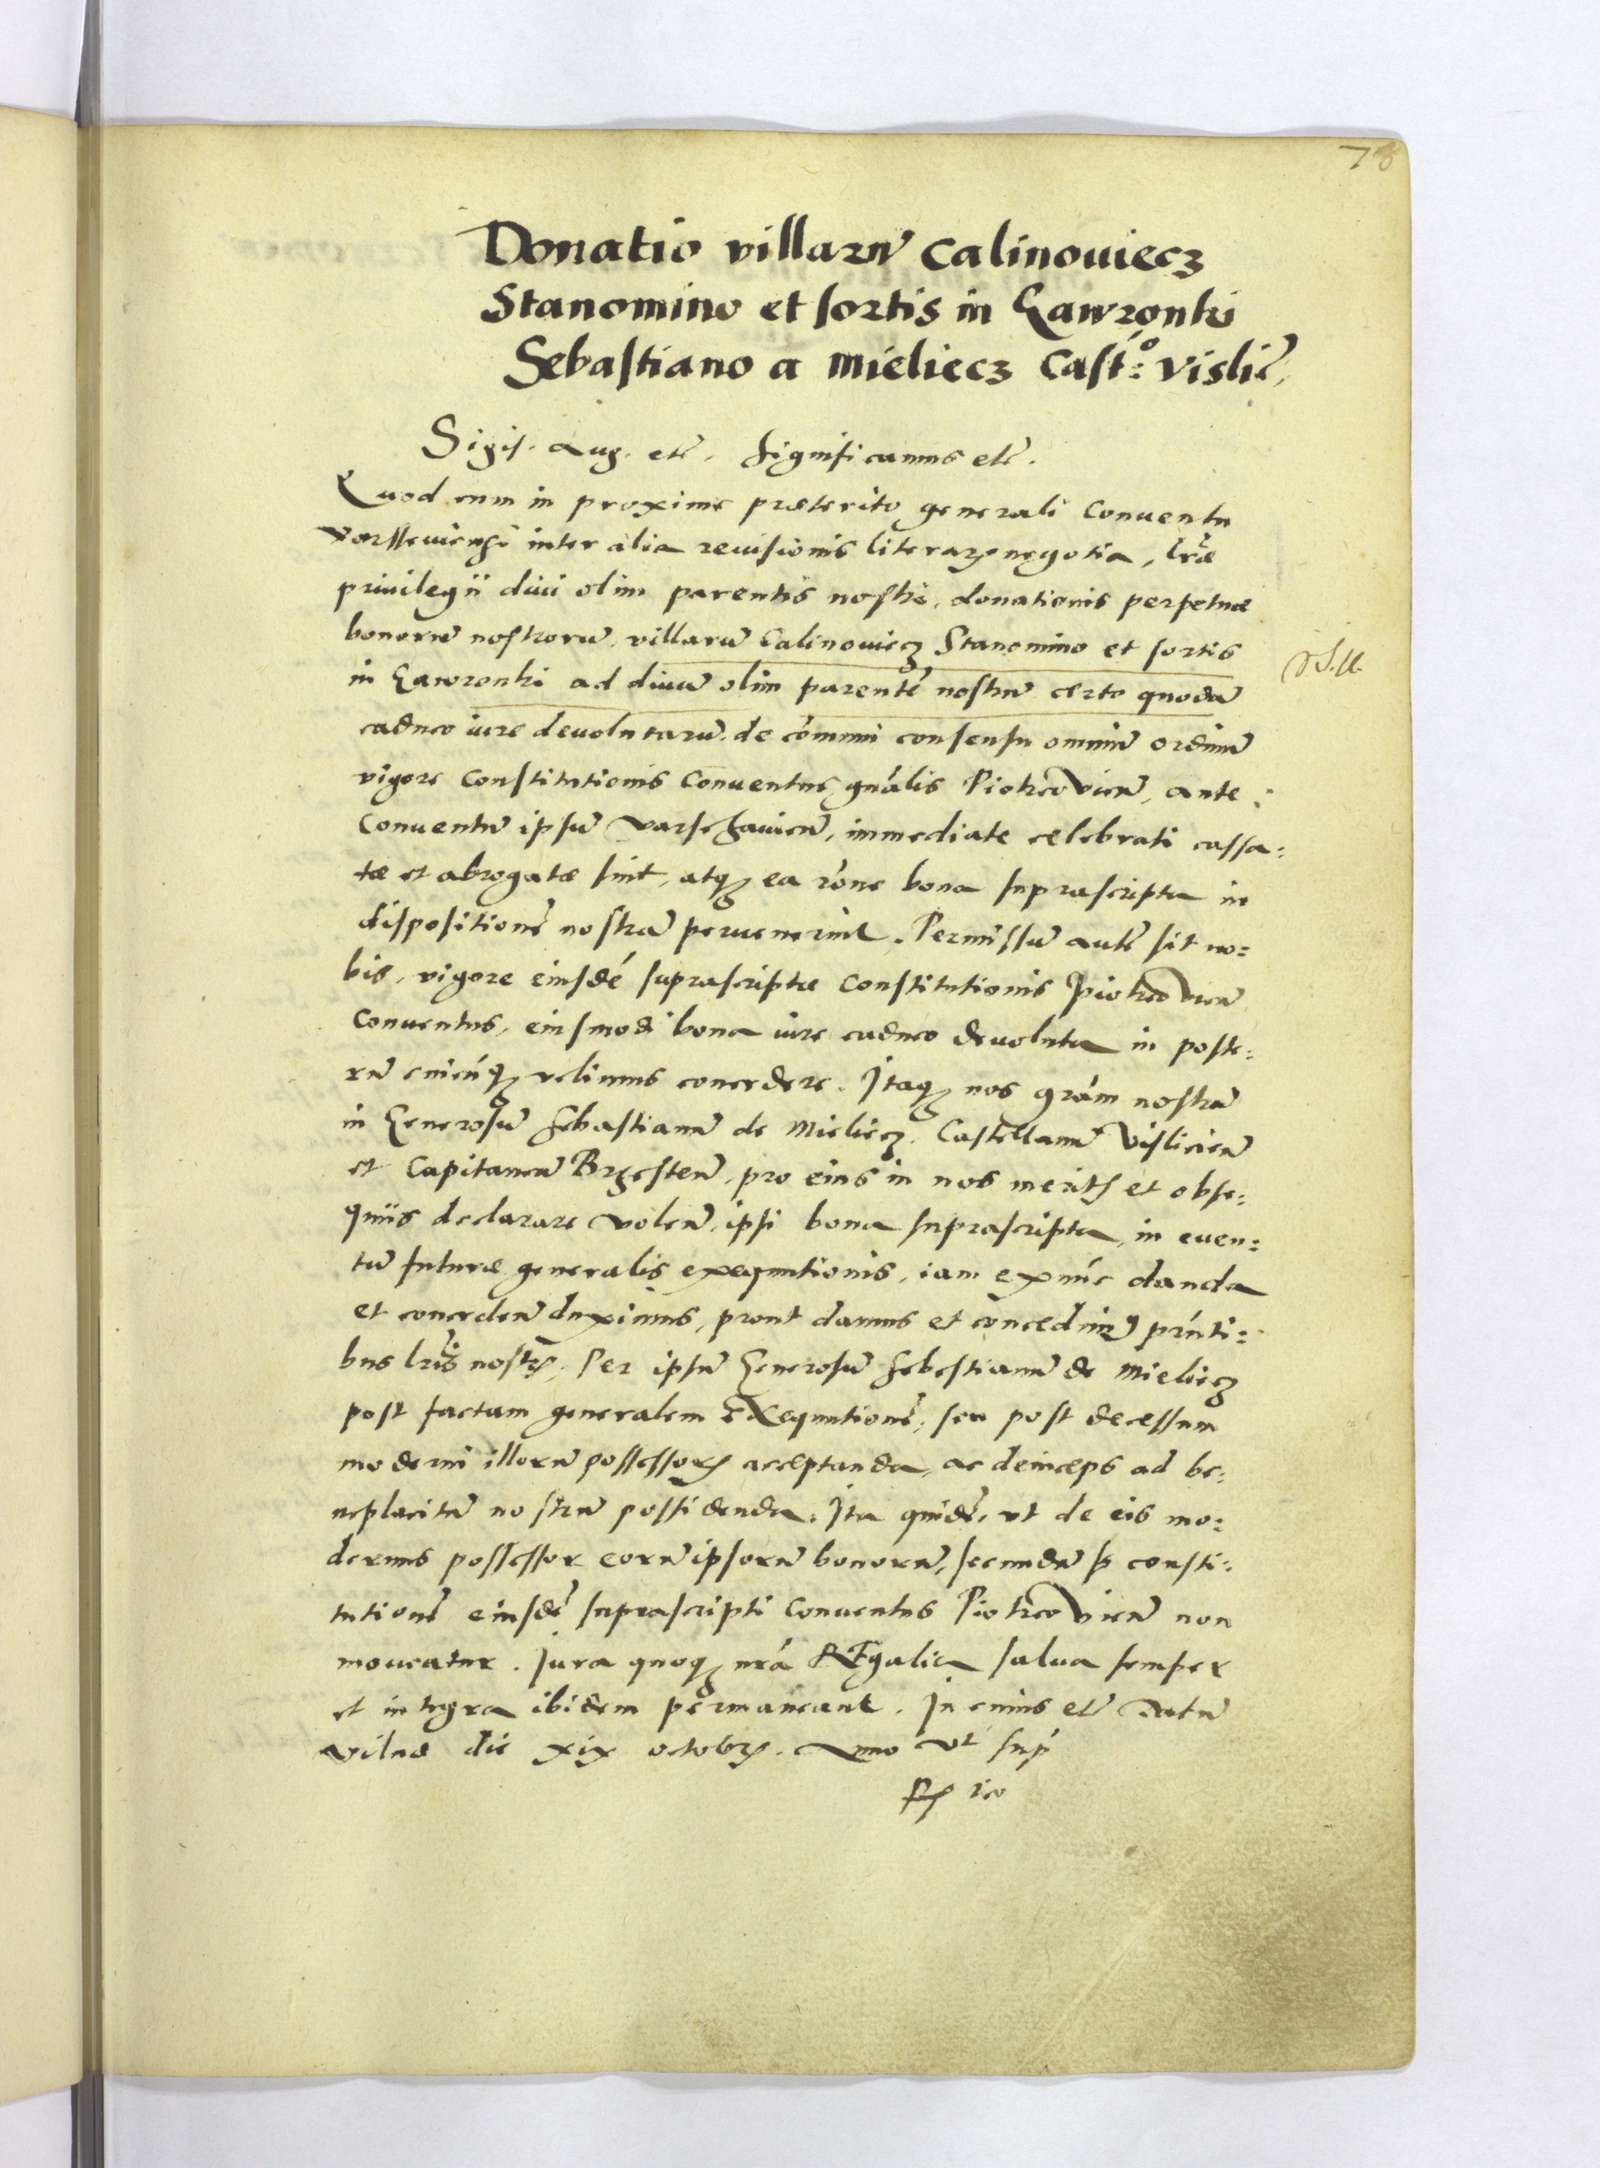 78
Donatio villarũ Calinouiecz
Stanomino et sortis in Gawronki
Sebastiano a Mieliecz Cast:º Vislic̃,
Sigis. Aug. etc̃. Significamus etc̃.
Quod cum in proxime præterito generali Conuentu
Varsseuiensi inter alia reuisionis literaꝝ negotia, lr̃æ
priuilegii diui olim parentis nostri, donationis perpetuæ
bonorũ nostrorũ, villarũ Calinouiecz Stanomino et sortis
in Gawronki ad diuũ olim parentẽ nostrũ certo quodã
caduco iure deuolutarũ, de cõmuni consensu omniũ ordinũ
vigore Constitutionis Conuentus gñalis Piotrcouieñ, ante
Conuentũ ipsũ Varschauieñ, immediate celebrati cassa:
tæ et abrogatæ sint, atqꝫ ea rõne bona suprascripta in
dispositionẽ nostrã peruenerint. Permissũ autẽ sit no:
bis, vigore eiusdẽ suprascriptæ Constitutionis Piotrcouieñ
Conuentus, eiusmodi bona iure caduco deuoluta in poste:
rũ cuicũqꝫ velimus concedere. Itaqꝫ nos grãm nostrã
in Generosũ Sebastianũ de Mieliecz. Castellanũ Vislicieñ
et Capitaneũ Brzesteñ, pro eius in nos meritꝭ et obse:
quiis declarare voleñ, ipsi bona suprascripta, in euen:
tũ futuræ generalis exequutionis, iam ex nũc danda
et concedeñ duximus, prout damus et concedimꝰ pr̃nti:
bus lr̃is nostrꝭ. Per ipsũ Generosũ Sebastianũ de Mieliecz
post factam generalem Exequutionẽ, seu post decessum
moderni illorũ possessorꝭ acceptanda, ac deinceps ad be:
neplacitũ nostrũ possidenda. Ita quidẽ, vt de eis mo:
dernus possessor eorũ ipsorũ bonorũ, secundũ consti:
tutionẽ eiusdẽ suprascripti Conuentus Piotrcouieñ non
moueatur. Iura quoqꝫ nr̃a Regalia salua semper
et integra ibidem permaneant. In cuius etc̃ Datũ
Vilnæ die xix octobrꝭ. Anno vt sup̃